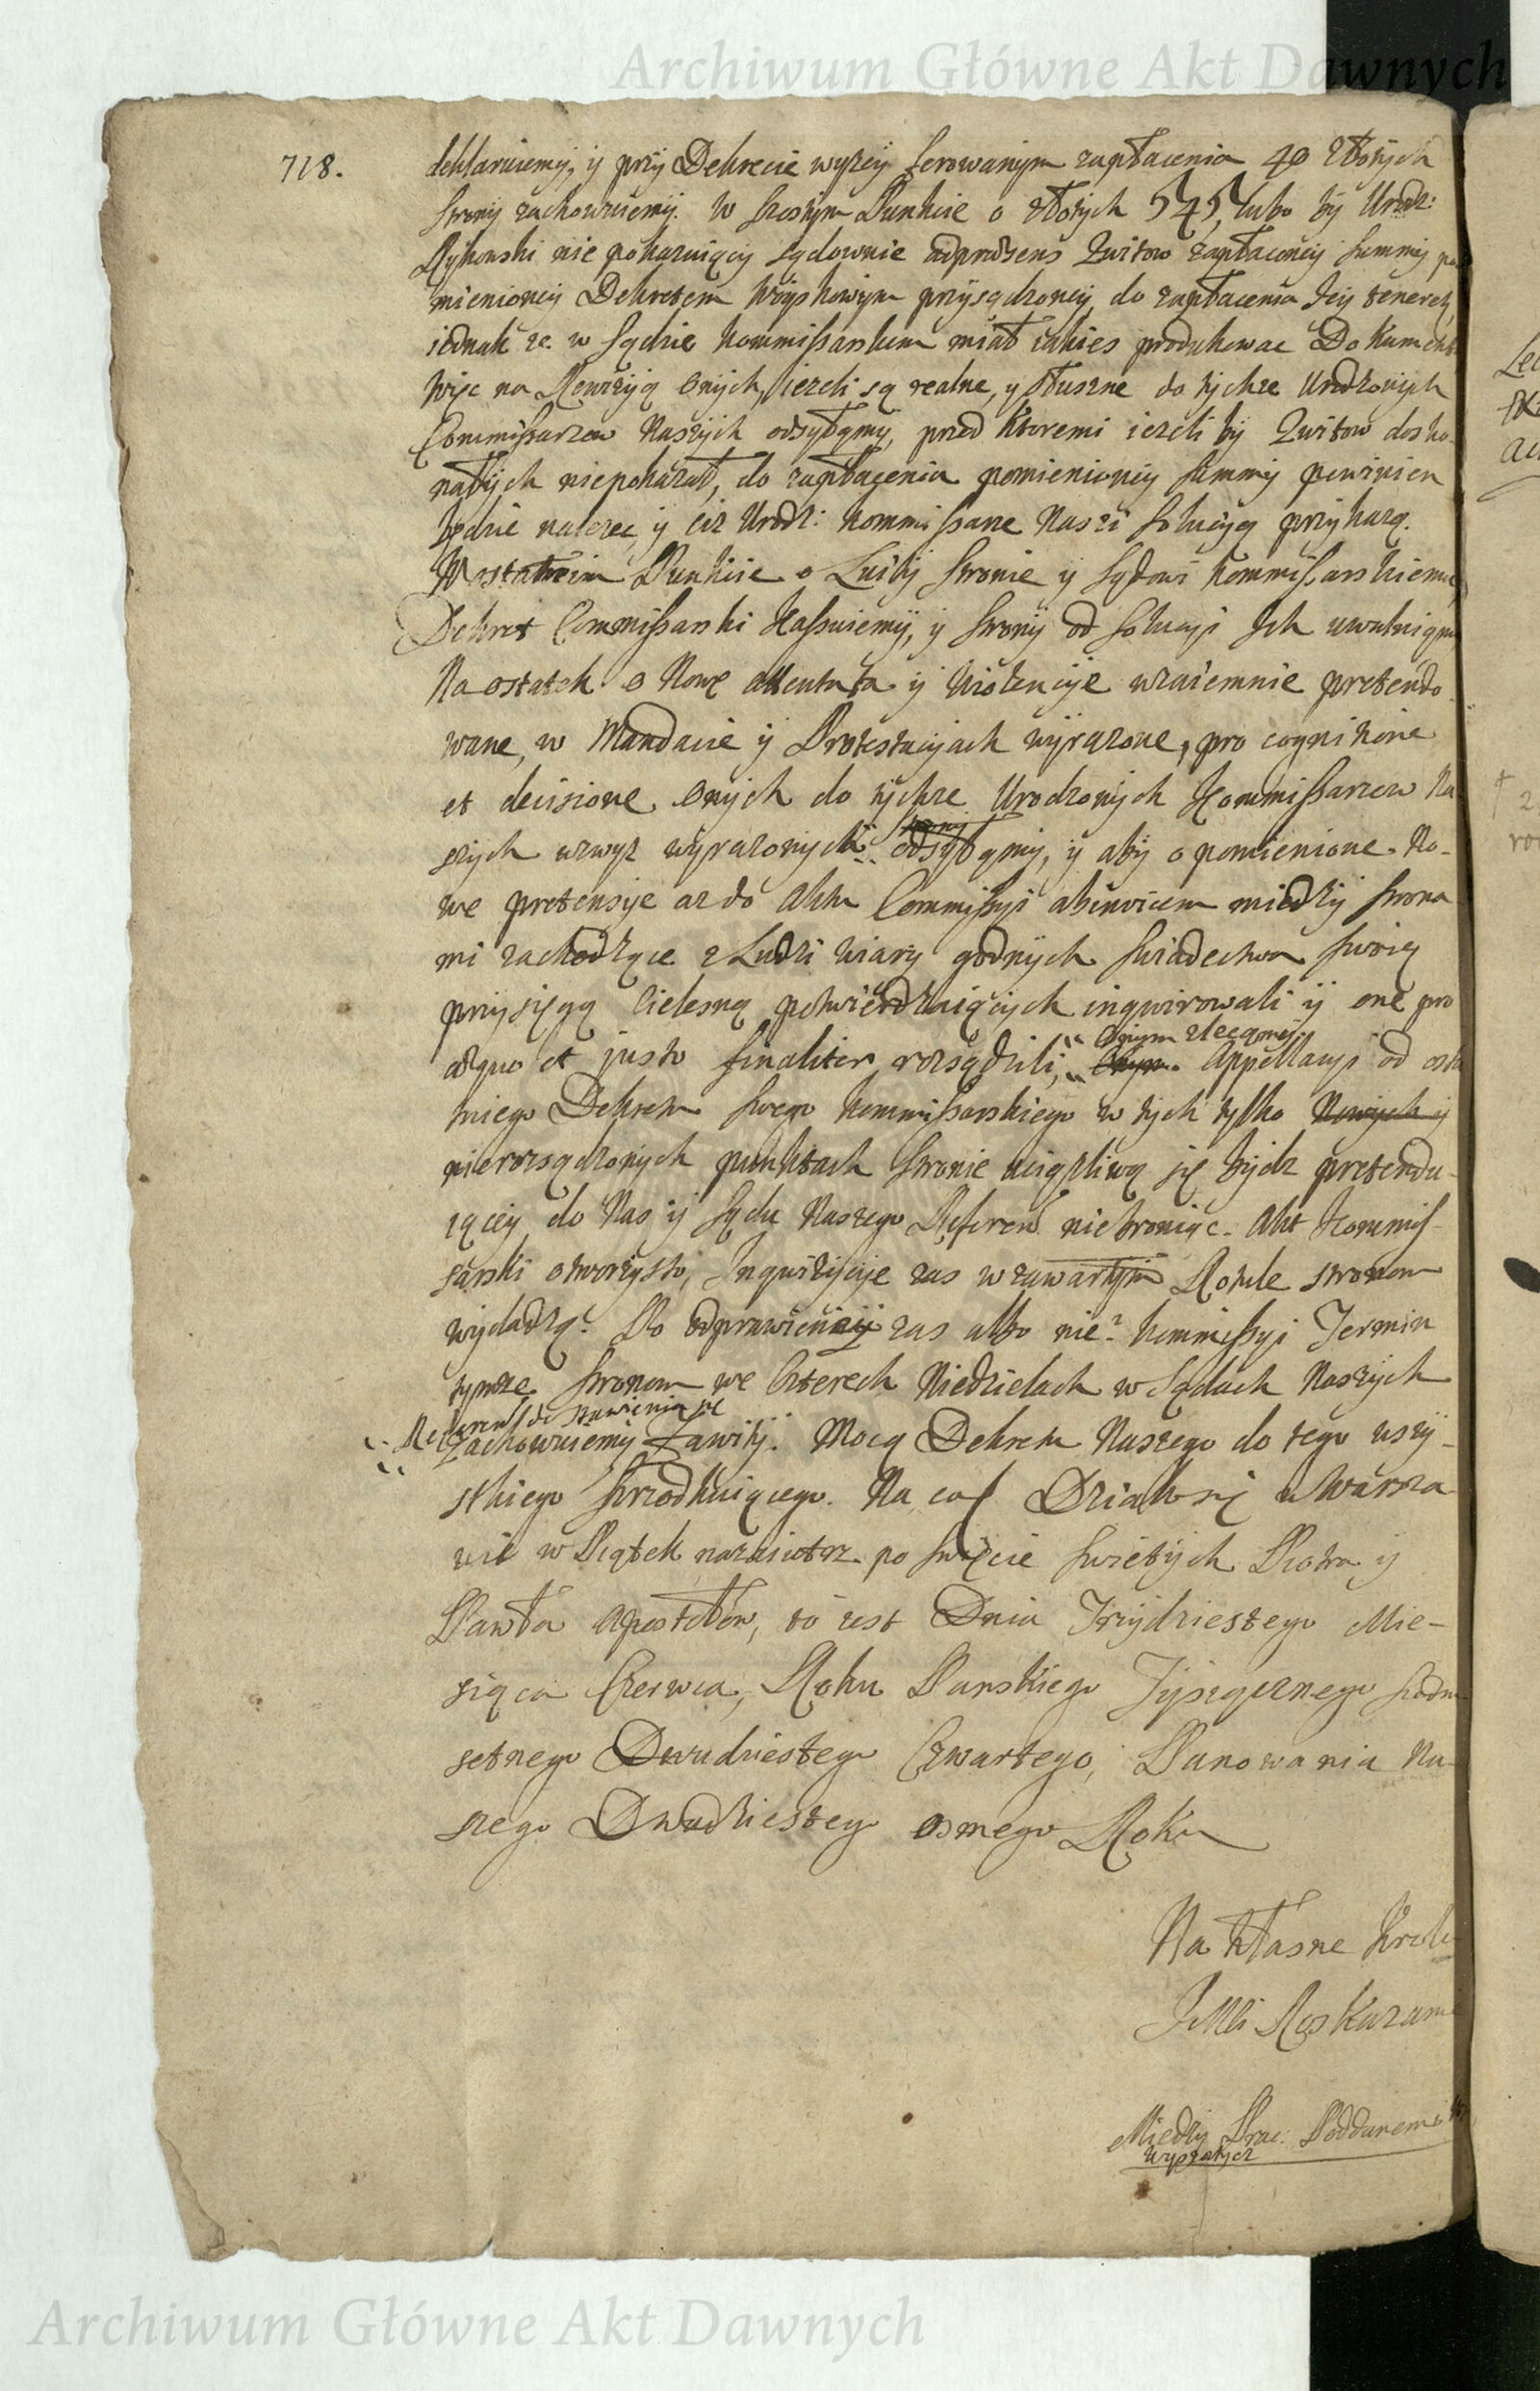 Archiwum Główne Akt Dawnych
718.
deklaruiemy, y przy Dekrecie wyzey ferowanym zapłacenia 40 złotych
strony zachowuiemy. W szostym Punkcie o złotych 545, lubo by Urodz:
Rykonski nie pokazuiący sądownie Kwitow zapłaconey summy po
mienioney Dekretem Woyskowym przysądzoney, do zapłacenia Jey tenerety
iednak ze w Sądzie Kommissarskim miał iakies produkowac Dokument
więc na Rewizyą onych, iezeli są realne, y słuszne do tychze Urodzonych
Commissarzow Naszych odsyłamy, przed ktoremi iezeli by Kwitow dosko-
nałych niepokazał, do zapłacenia pomienioney summy powinien
będzie nalezec, y ciz Urodz: Kommissarze Nasi solucyą przykazą.
W ostatnim Punkcie o Luity stronie y Sądowi Kommissarskiemu
Dekret Commissarski Kassuiemy, y strony od solucyi Ich uwalniamy
Na ostatek o Nowe attentata y Wiolencyje wzaiemnie pretendo-
wane, w Mandacie y Protestacyjach wyrazone, pro cognitione
et decisione onych do tychze Urodzonych Kommissarzow Na
szych wzwyz wyrazonych strony odsyłamy, y aby o pomienione No-
we pretensyje az do Aktu Commissyi abinvicem miedzy strona
mi zachodzące z Ludzi wiary godnych swiadectwa swoię
przysięgą cielesną potwierdzaiących inqwirowali y one pro
aequo et justo finaliter rozsądzili, Onym zlecamy Onym. Appellacyi od osta
tniego Dekretu swego Kommissarskiego w tych tylko Nowych y
nierozsądzonych punktach stronie uciązliwą się bydz pretendu-
iącey do Nas y Sądu Naszego Referen. niebroniąc. Akt Kommis-
sarski otworzysto, Inqwizycyje zas w zawartym Rotule stronom
wydadzą. Po odprawioney zas albo nie? Kommissyi Termin
tymze stronom we czterech Niedzielach w Sądach Naszych
Referen. do stawienia się
zachowuiemy zawity. Mocą Dekretu Naszego do tego wszy-
stkiego srzodkuiącego. Na co Działo się w Warsza-
wie w Piątek nazaiutrz po swięcie swiętych Piotra y
Pawła Apostołów, to iest Dnia Trzydziestego Mie-
siąca Czerwca, Roku Panskiego Tysącznego siedm
setnego Dwudziestego Czwartego, Panowania Na-
szego Dwudziestego osmego Roku
Na Własne Krole
JMśi Roskazanie
Miedzy Prac. Poddanemi
Archiwum Główne Akt Dawnych